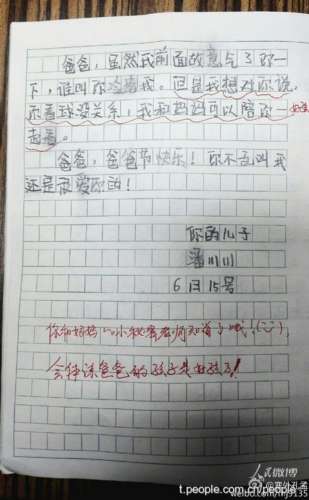 爸爸,虽然我前面故意气了你一
下,谁叫你冷落我。但是我想对你说,
你看球没关系,我和妈妈可以陪你一
起看。
爸爸,爸爸节快乐!你不互叫我
还是很爱你的!
你的儿子
潘川川
6日15号
你和妈妈的小秘密老师知道了哦!
会体谅爸爸的孩子是好孩子!
人民微博
t.people.com.cn/people
weibo.com